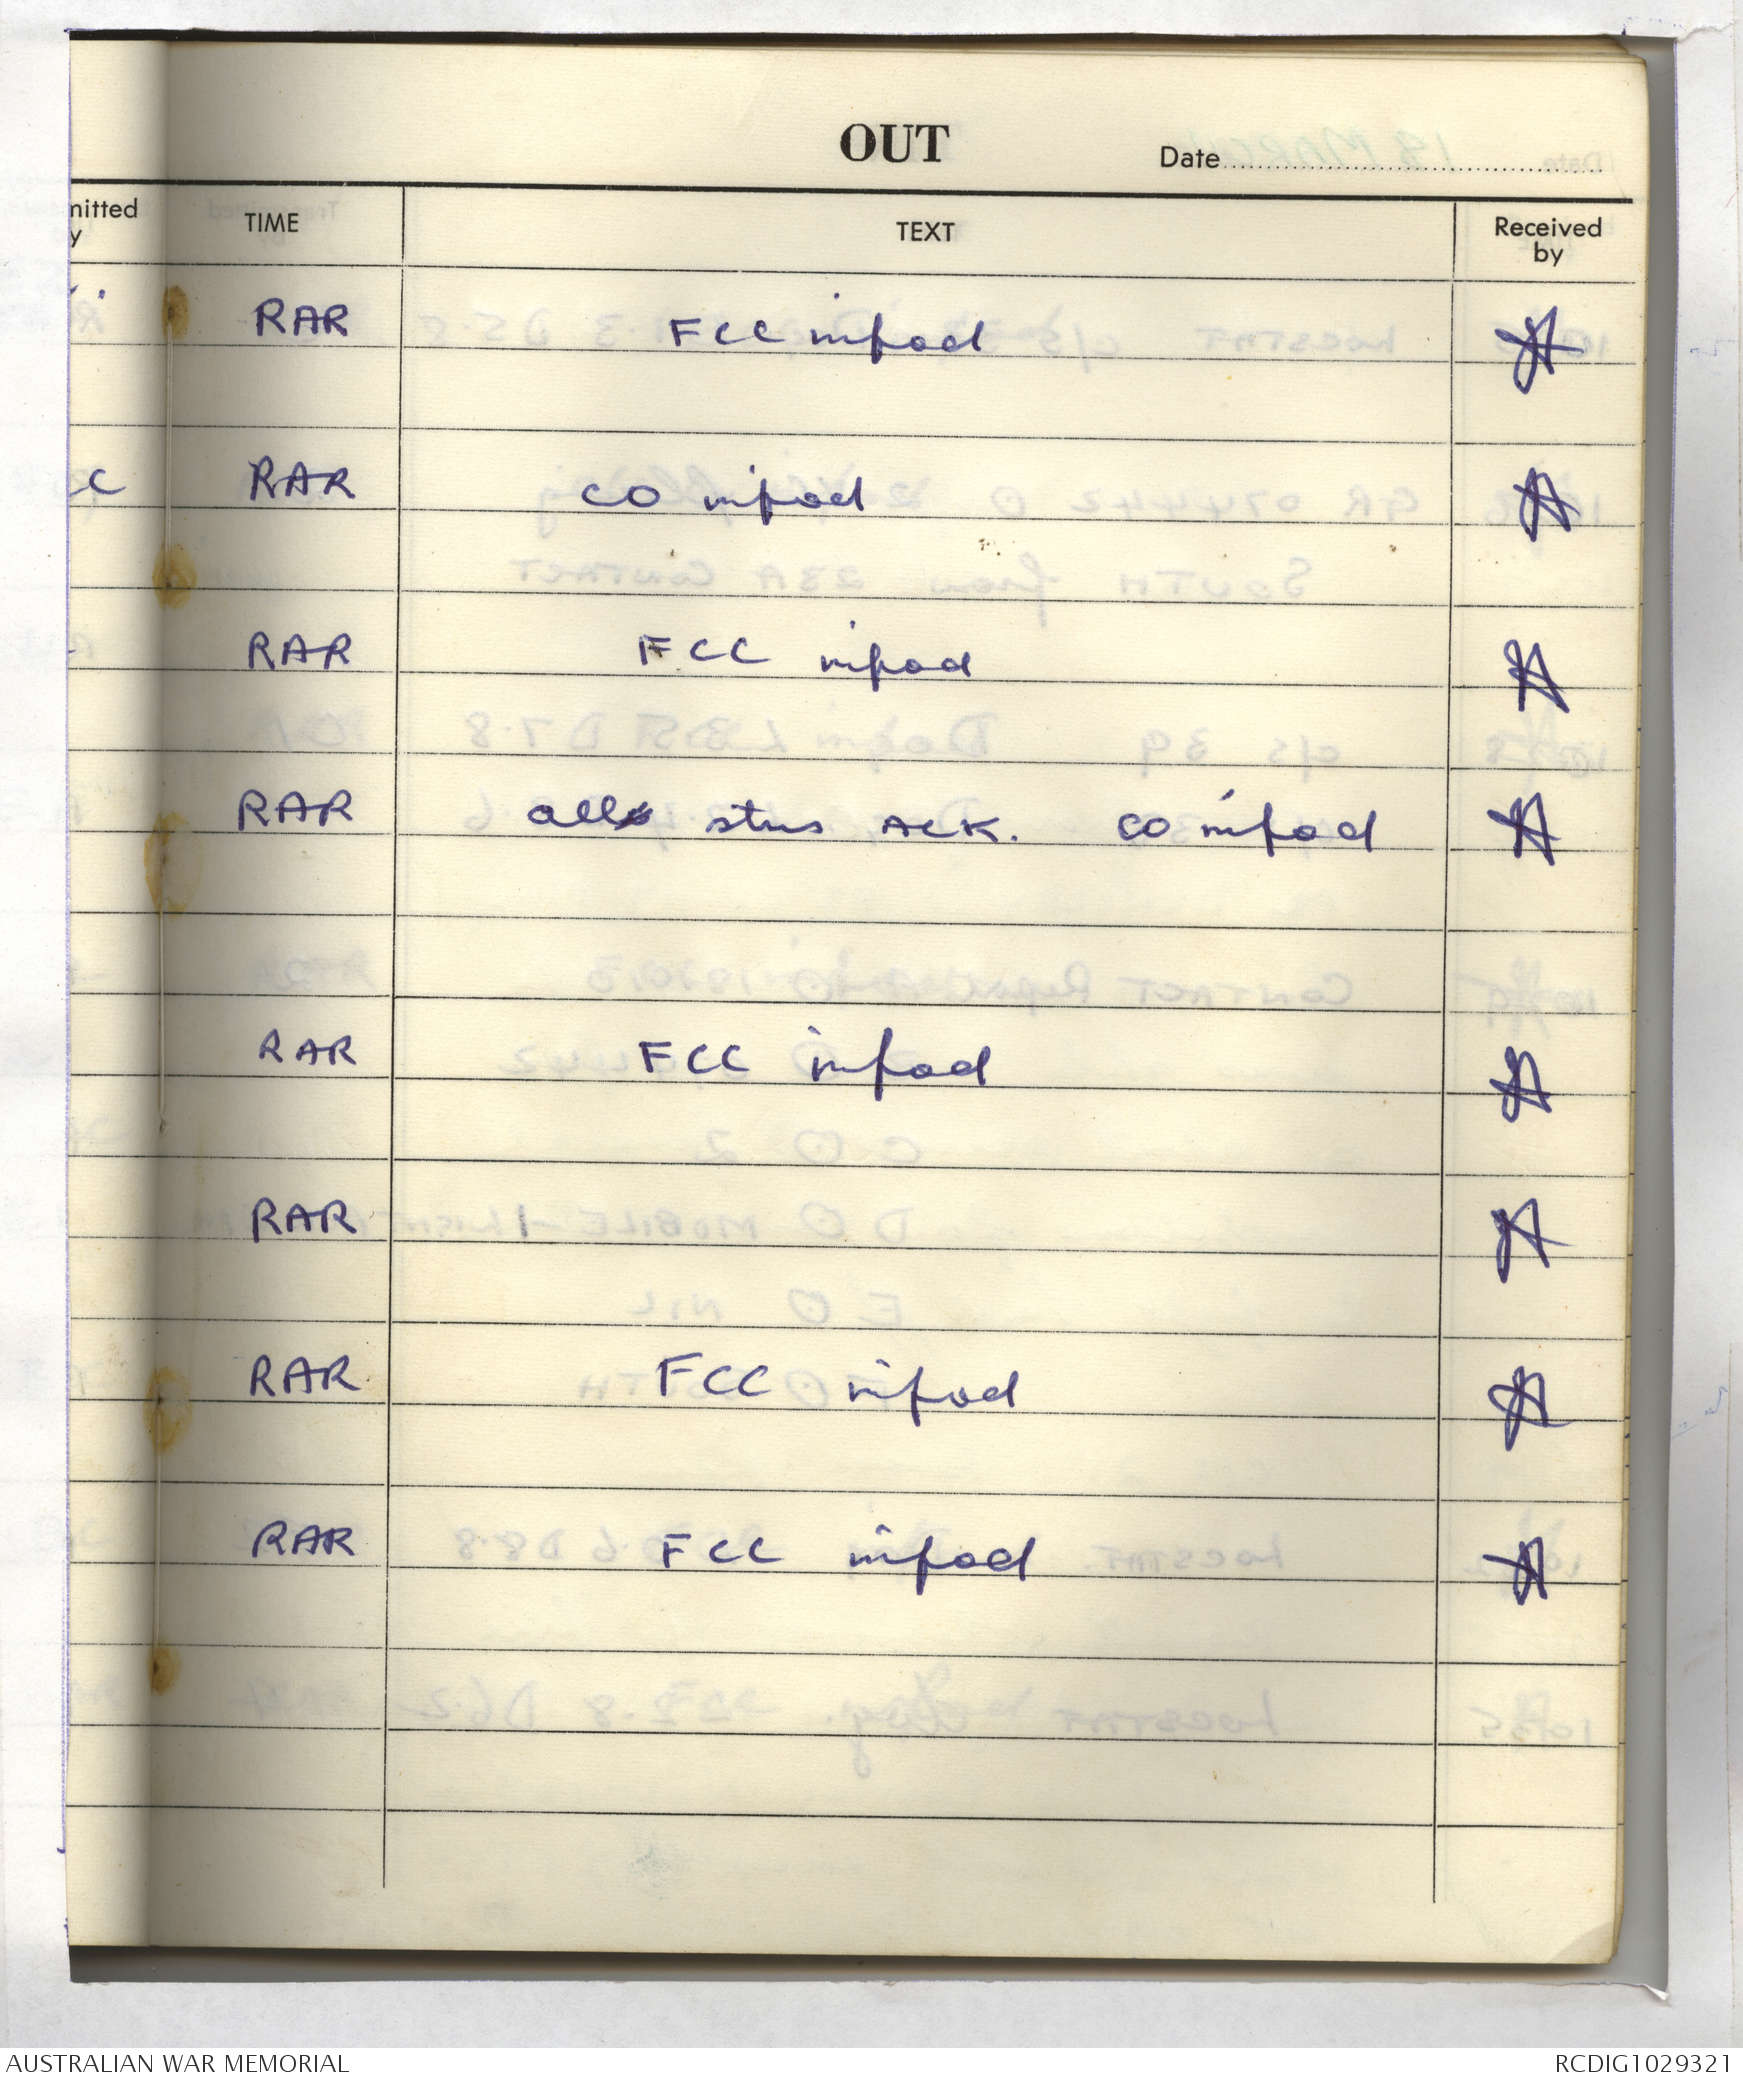 OUT
Date
mitted
y
TIME
TEXT
Received
by
RAR FCC infod
C RAR CO infod
RAR FCC infod
RAR all stns ACK. CO infod
RAR FCC infod
RAR
RAR FCC infod
RAR FCC infod
AUSTRALIAN WAR MEMORIAL
RCDIG1029321